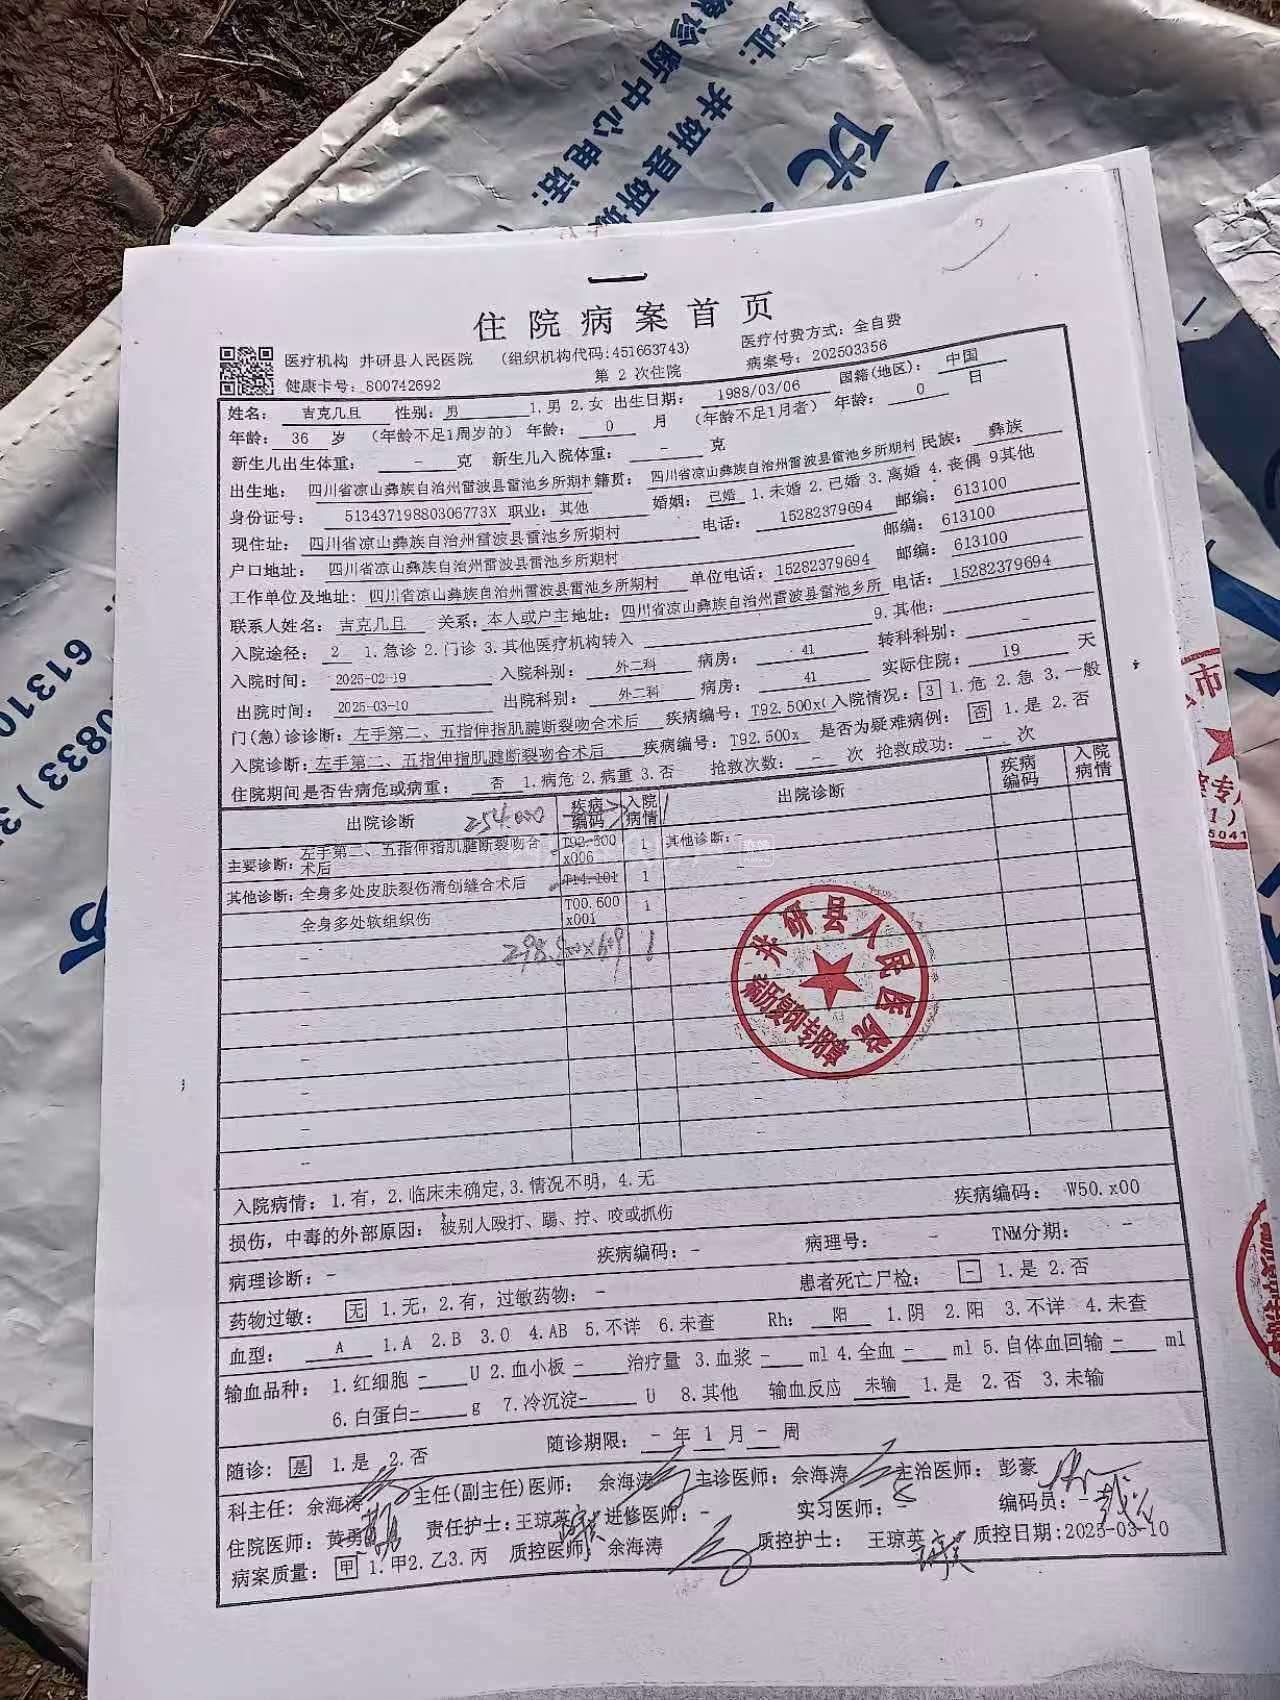 地址:
诊断中心电话:
井研县研城
优
住院病案首页
医疗机构 井研县人民医院 (组织机构代码:451663743) 医疗付费方式: 全自费
健康卡号: 800742692 第 2 次住院 病案号: 202503356
姓名: 吉克几且 性别: 男 1.男 2.女 出生日期: 1988/03/06 国籍(地区): 中国
年龄: 36 岁 (年龄不足1周岁的) 年龄: 0 月 (年龄不足1月者) 年龄: 0 日
新生儿出生体重: - 克 新生儿入院体重: - 克
出生地: 四川省凉山彝族自治州雷波县雷池乡所期村 籍贯: 四川省凉山彝族自治州雷波县雷池乡所期村 民族: 彝族
身份证号: 51343719880306773X 职业: 其他 婚姻: 已婚 1.未婚 2.已婚 3.离婚 4.丧偶 9其他
现住址: 四川省凉山彝族自治州雷波县雷池乡所期村 电话: 15282379694 邮编: 613100
户口地址: 四川省凉山彝族自治州雷波县雷池乡所期村 邮编: 613100
工作单位及地址: 四川省凉山彝族自治州雷波县雷池乡所期村 单位电话: 15282379694 邮编: 613100
联系人姓名: 吉克几且 关系: 本人或户主 地址: 四川省凉山彝族自治州雷波县雷池乡所 电话: 15282379694
入院途径: 2 1.急诊 2.门诊 3.其他医疗机构转入 9.其他:
入院时间: 2025-02-19 入院科别: 外二科 病房: 41 转科科别: -
出院时间: 2025-03-10 出院科别: 外二科 病房: 41 实际住院: 19 天
门(急)诊诊断: 左手第二、五指伸指肌腱断裂吻合术后 疾病编号: T92.500x( 入院情况: 3 1.危 2.急 3.一般
入院诊断: 左手第二、五指伸指肌腱断裂吻合术后 疾病编号: T92.500x 是否为疑难病例: 否 1.是 2.否
住院期间是否告病危或病重: 否 1.病危 2.病重 3.否 抢救次数: - 次 抢救成功: - 次
出院诊断 疾病编码 入院病情 出院诊断 疾病编码 入院病情
主要诊断: 左手第二、五指伸指肌腱断裂吻合术后 T92.500x006 1 其他诊断: -
其他诊断: 全身多处皮肤裂伤清创缝合术后 T14.101 1
全身多处软组织伤 T00.600x001 1
井研县人民医院
病历复印专用章
入院病情: 1.有, 2.临床未确定, 3.情况不明, 4.无
损伤, 中毒的外部原因: 被别人殴打、踢、拧、咬或抓伤 疾病编码: W50.x00
病理诊断: - 疾病编码: - 病理号: - TNM分期: -
药物过敏: 无 1.无, 2.有, 过敏药物: - 患者死亡尸检: - 1.是 2.否
血型: A 1.A 2.B 3.O 4.AB 5.不详 6.未查 Rh: 阳 1.阴 2.阳 3.不详 4.未查
输血品种: 1.红细胞 - U 2.血小板 - 治疗量 3.血浆 - ml 4.全血 - ml 5.自体血回输 - ml
6.白蛋白 - g 7.冷沉淀 - U 8.其他 输血反应 未输 1.是 2.否 3.未输
随诊: 是 1.是 2.否 随诊期限: - 年 1 月 - 周
科主任: 余海涛 主任(副主任)医师: 余海涛 主诊医师: 余海涛 主治医师: 彭豪
住院医师: 黄勇 责任护士: 王琼英 进修医师: - 实习医师: 编码员: -
病案质量: 甲 1.甲2.乙3.丙 质控医师: 余海涛 质控护士: 王琼英 质控日期: 2025-03-10